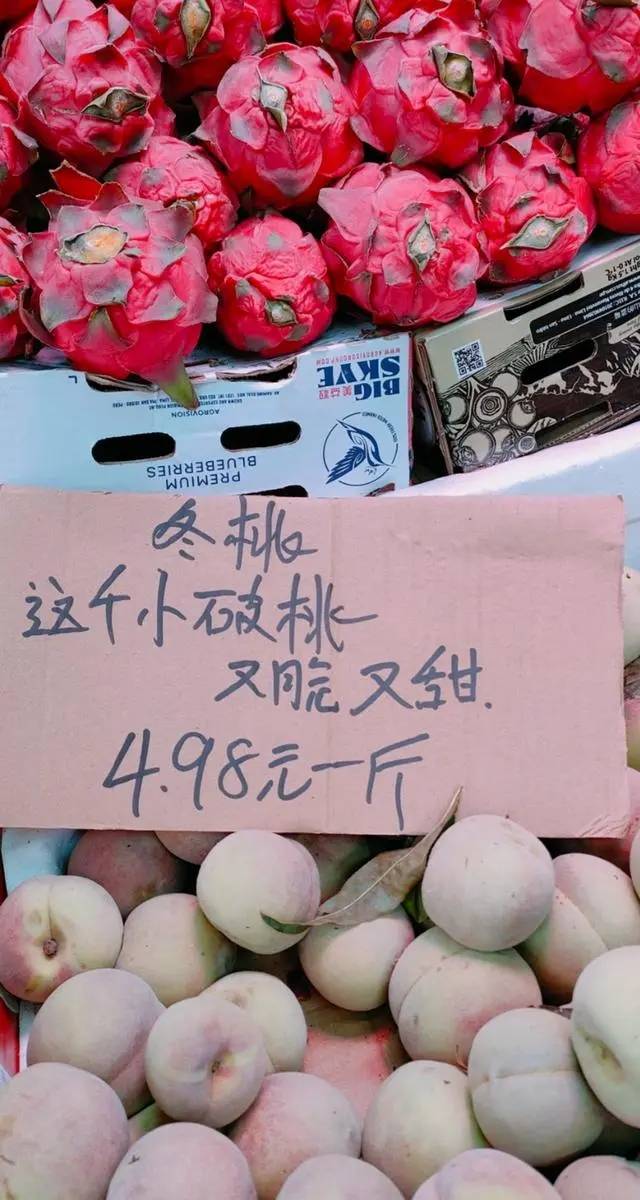 BIG
SKYE
AGROVISION
PREMIUM
BLUEBERRIES
L
冬桃
这个小破桃
又脆又甜.
4.98元一斤